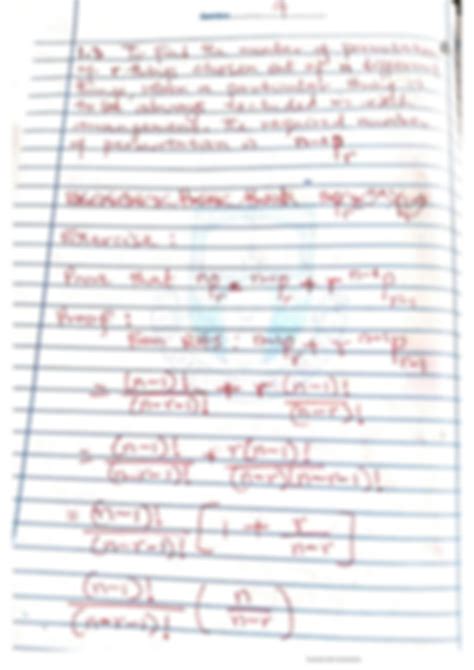 1.3 To find the number of permutation
of r things chosen out of n different
things, when a particular thing is
to be always excluded in each
arrangement. The required number
of permutation is n-1Pr
Exercise :
Prove that nPr = n-1Pr + r n-1Pr-1
Proof :
From RHS : n-1Pr + r n-1Pr-1
⇒ (n-1)!/(n-r-1)! + r (n-1)!/(n-r)!
⇒ (n-1)!/(n-r-1)! + r(n-1)!/(n-r)(n-r-1)!
= (n-1)!/(n-r-1)! [1 + r/n-r]
(n-1)!/(n-r-1)! (n/n-r)